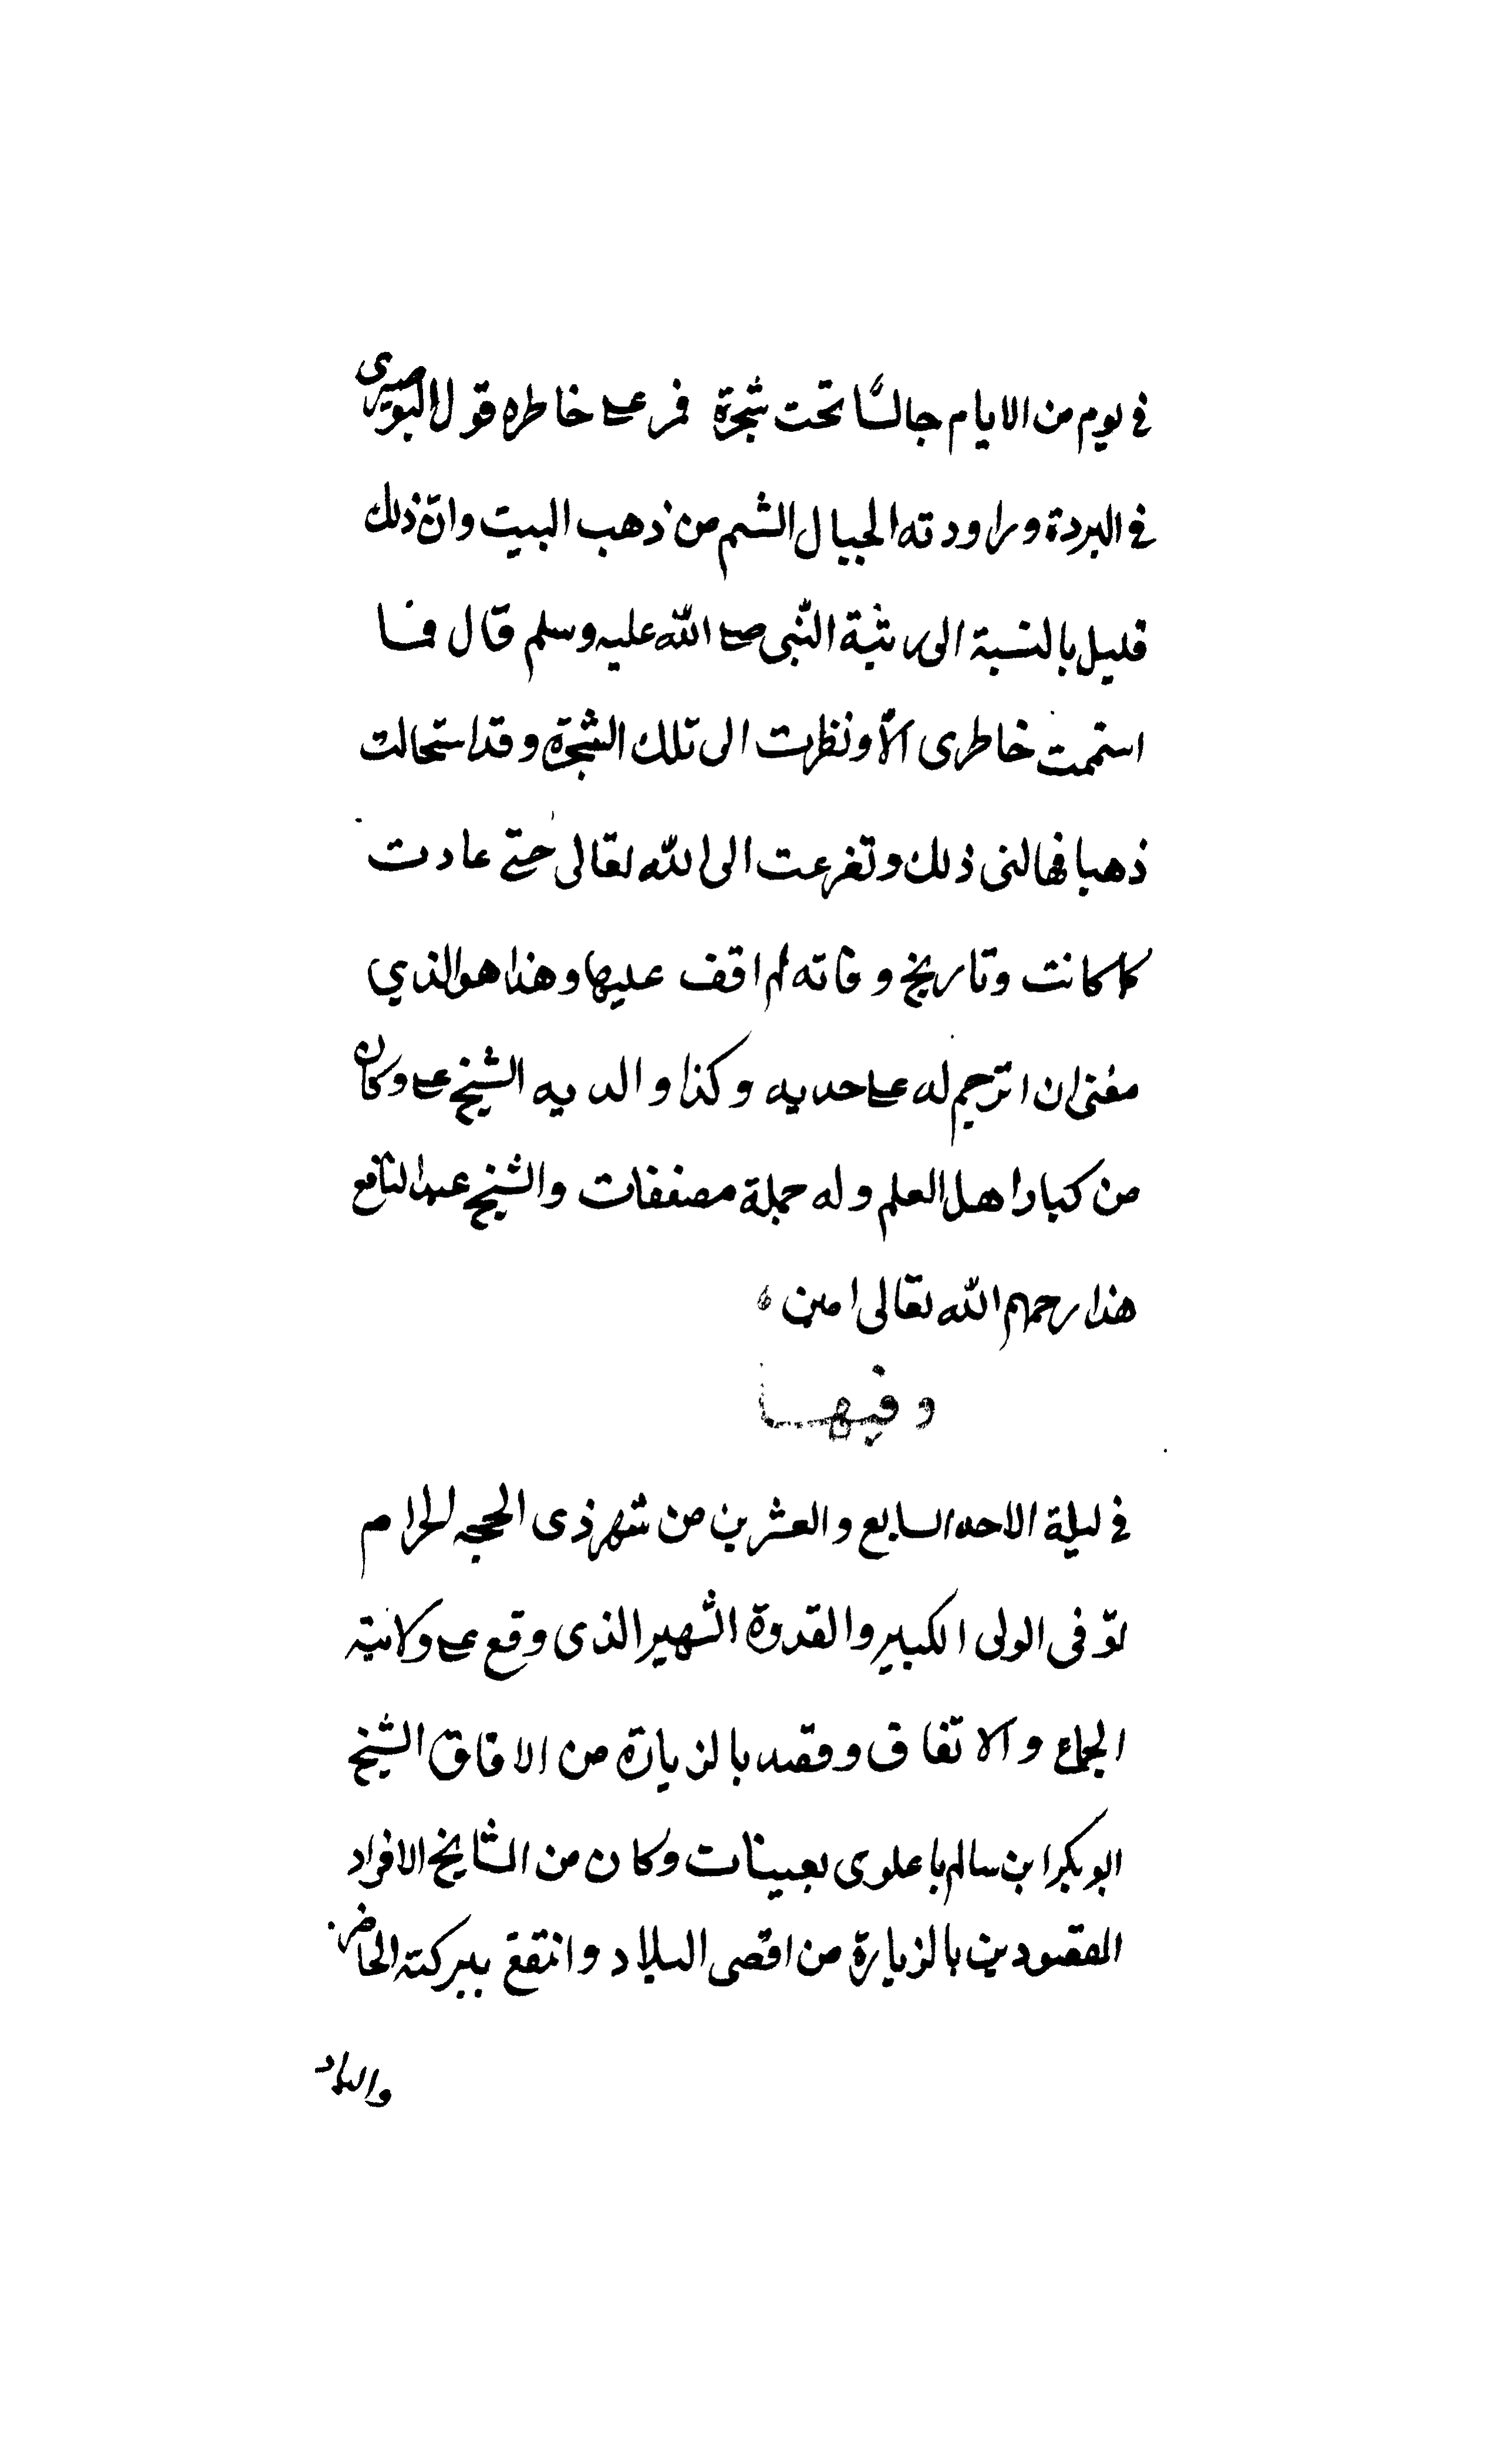 في يوم من الايام جالسًا تحت شجرة فمر على خاطره قول البوصيرى
في البردة وراودته الجبال الشم من ذهب البيت وانّ ذلك
قليل بالنسبة الى رتبة النّبى صلى الله عليه وسلم قال فما
استتمت خاطرى الّا ونظرت الى تلك الشجرة وقد استحالت
ذهبا فهالنى ذلك وتضرعت الى الله تعالى حتى عادت
كما كانت وتاريخ وفاته لم اقف عليها وهذا هو الذي
منعنى ان اترجم له على حديه وكذا والديه الشيخ على وكان
من كبار اهل العلم وله جملة مصنفات والشيخ عبد النافع
هذا رحمهم الله تعالى امين
وفيها
في ليلة الاحد السابع والعشرين من شهر ذى الحجه الحرام
توّفى الولى الكبير والقدوة الشهير الذى وقع على ولايته
الجماع والاتفاق وقصد بالزيارة من الافاق الشيخ
ابو بكر ابن سالم باعلوى بعينات وكان من المشايخ الافراد
المقصودين بالزيارة من اقصى البلاد وانتفع ببركته الحاضر
والبلاد